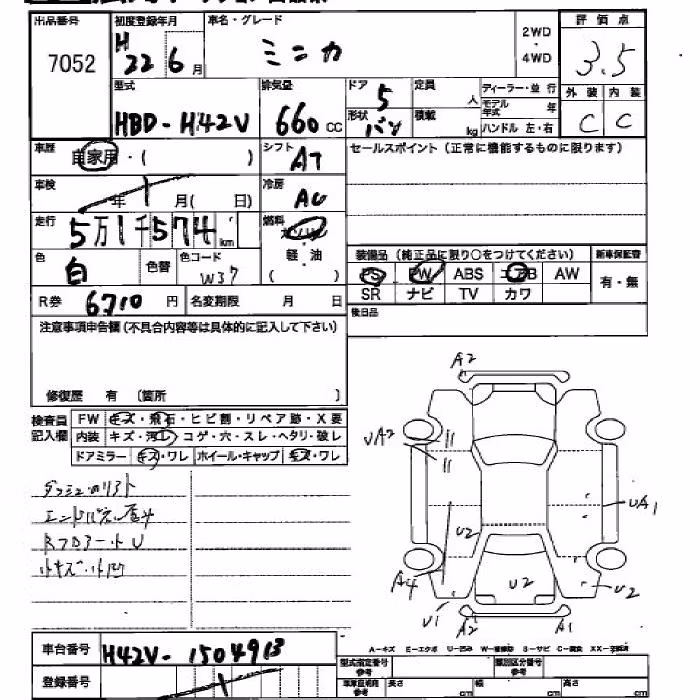 出品番号 初度登録年月 車名・グレード 2WD・4WD 評価点
7052 H22 6月 ミニカ 3.5
型式 排気量 ドア 定員 ディーラー・並行 外装 内装
HBD-H42V 660cc 5 人 モデル年式 年 C C
形状 バン 積載 kg ハンドル 左・右
車歴 自家用・( ) シフト AT セールスポイント(正常に機能するものに限ります)
車検 年 月( 日) 冷房 AC
走行 5万1千574km 燃料 ガソリン
色 白 色替 色コード W37 軽・油 ( )
装備品(純正品に限り○をつけてください) 新車保証書
PS PW ABS エアB AW 有・無
SR ナビ TV カワ
R券 6710円 名変期限 月 日
後日品
注意事項申告欄(不具合内容等は具体的に記入して下さい)
修復歴 有 〔箇所 〕
検査員記入欄
FW キズ・飛石・ヒビ割・リペア跡・X要
内装 キズ・汚レ・コゲ・穴・スレ・ヘタリ・破レ
ドアミラー キズ・ワレ ホイール・キャップ キズ・ワレ
A2
UA2
UA1
U2
A4
U2
U2
U1
A2
A1
小キズ・小凹
車台番号 H42V-1504913
登録番号
A-キズ E-エクボ U-凹み W-補修跡 S-サビ C-腐食 XX-交換済
型式指定番号 参考 類別区分番号 参考
長さ cm 幅 cm 高さ cm